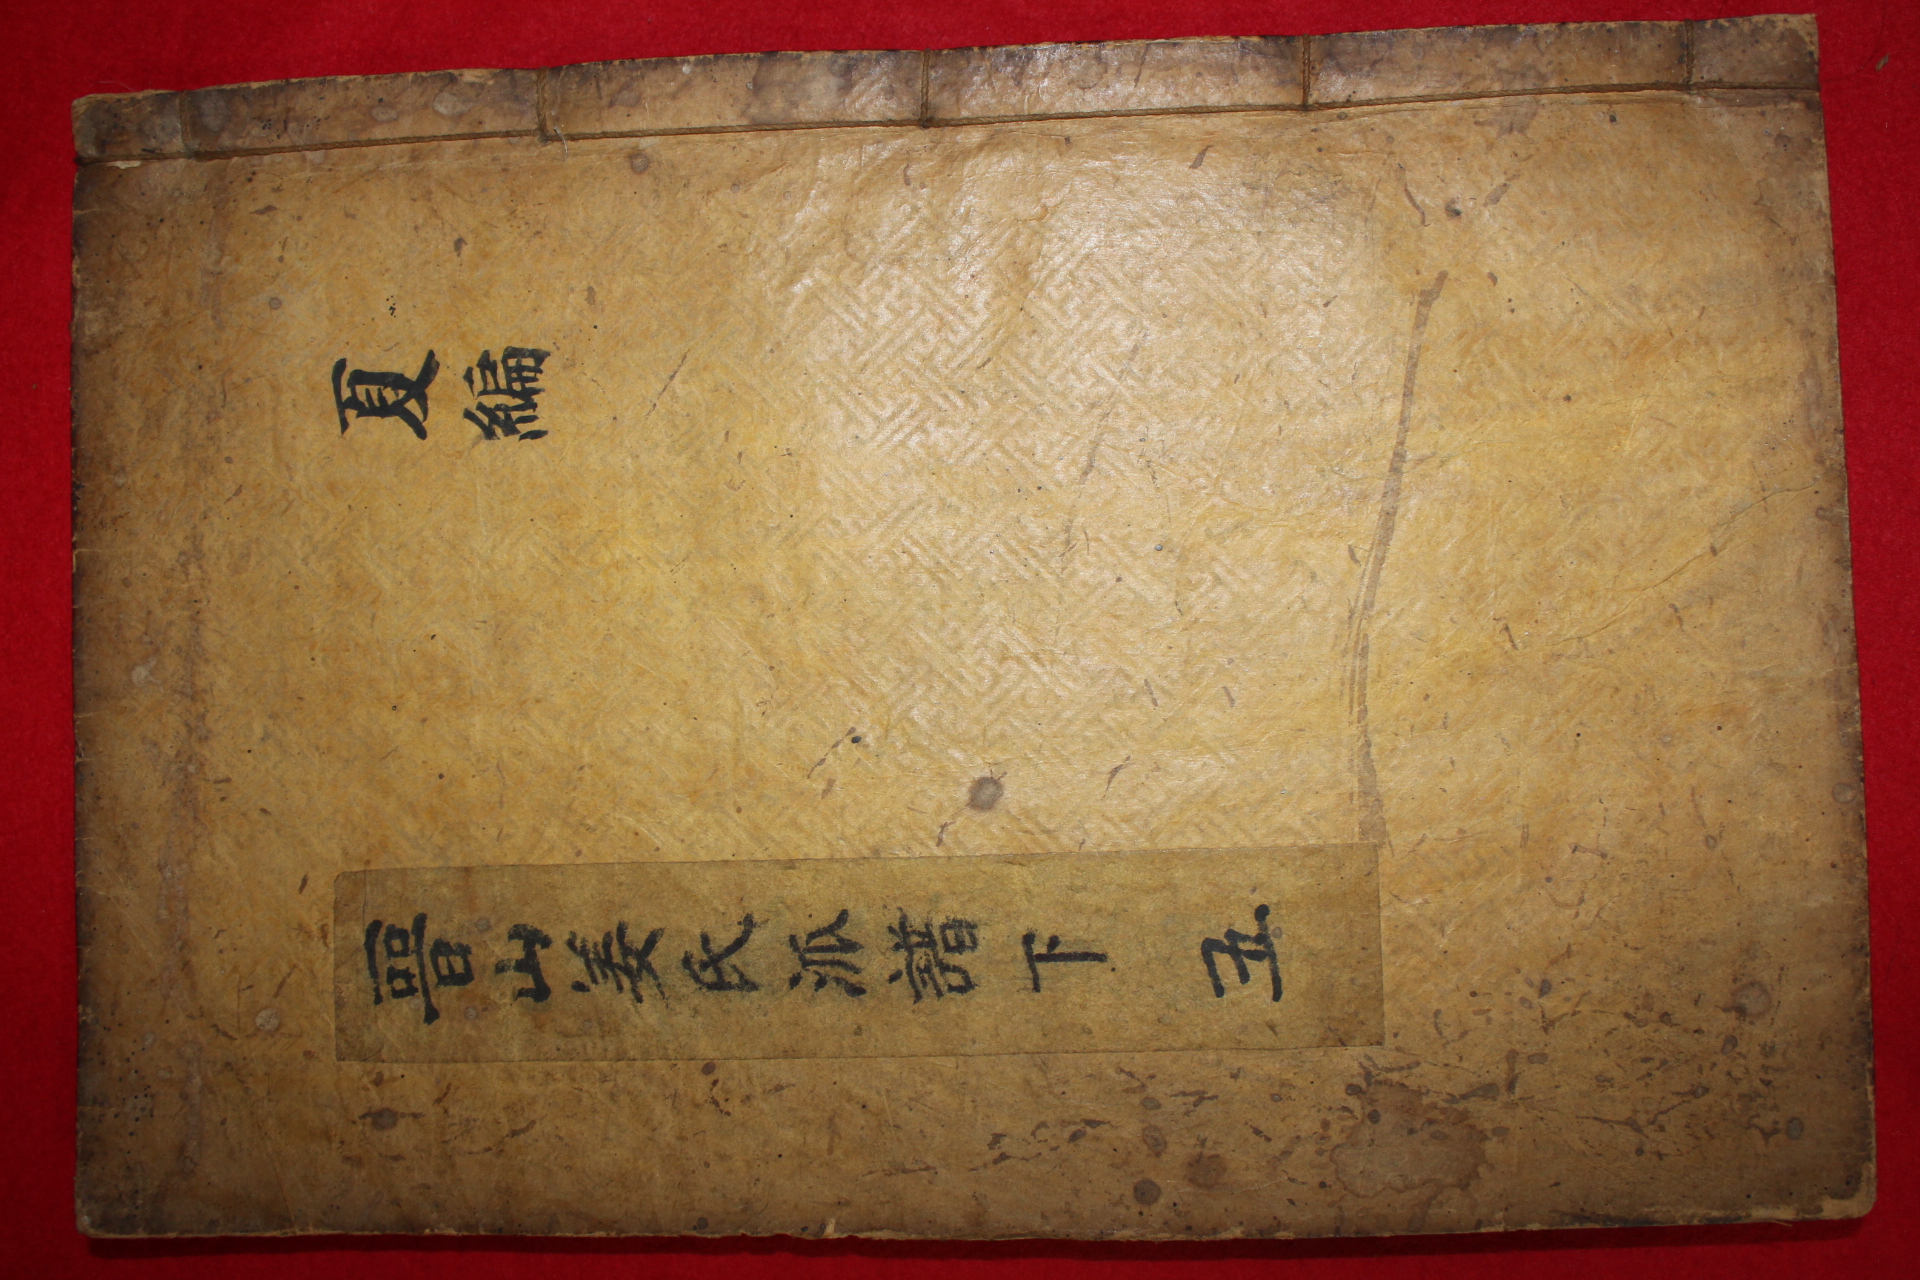 夏編
晉山姜氏派譜下 五